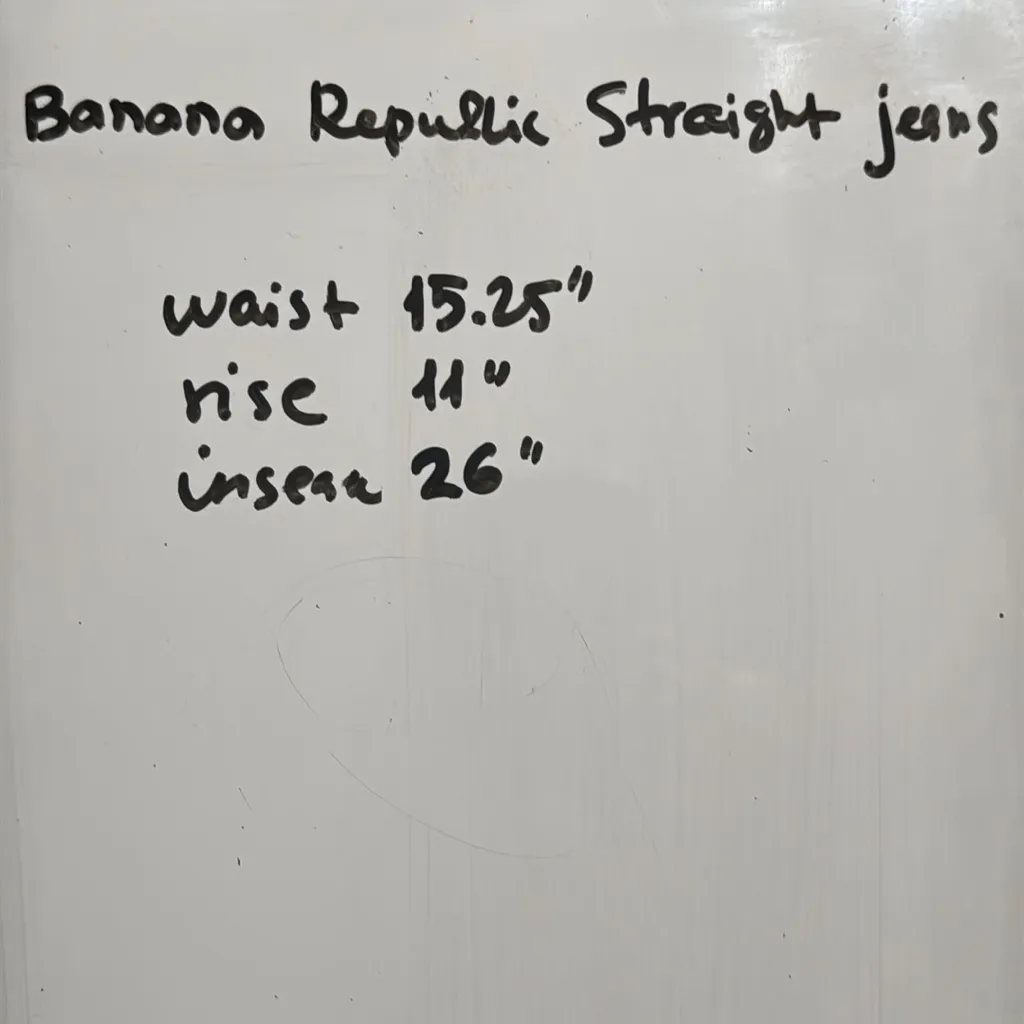 Banana Republic Straight jeans
waist 15.25"
rise 11"
inseam 26"